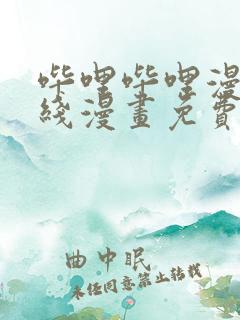 哔哩哔哩漫
线漫画免费
曲中眠
未经同意禁止转载